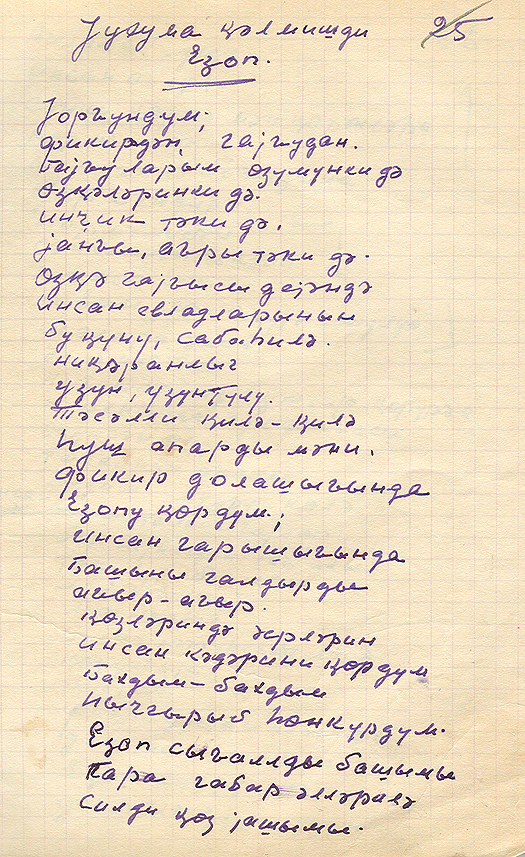 Јухума ҝәлмишди
25
Езоп.
Јорғундум,
фикирдән, гајғудан.
Гајғуларым өзүмүнки дә
өзҝәләринки дә.
инҹик тәки дә,
јанғы, ағры тәки дә.
өзҝә гајғысы дејәндә
инсан евладларынын
бу ҝүнү, сабаһилә.
ниҝаранлыг
узун, узун
Тәсәлли ҝилә-ҝилә
һуш апарды мәни.
Фикир долашығында
Езопу ҝөрдүм,
инсан гарышығында
Башыны галдырды
ағыр-ағыр.
Ҝөзләриндә әсрләрин
инсан кәдәрини ҝөрдүм
Бахдым-бахдым
һычгырыб һөнкүрдүм.
Езоп сығаллды башымы
Гара габар әлләрилә
Силди ҝөз јашымы.